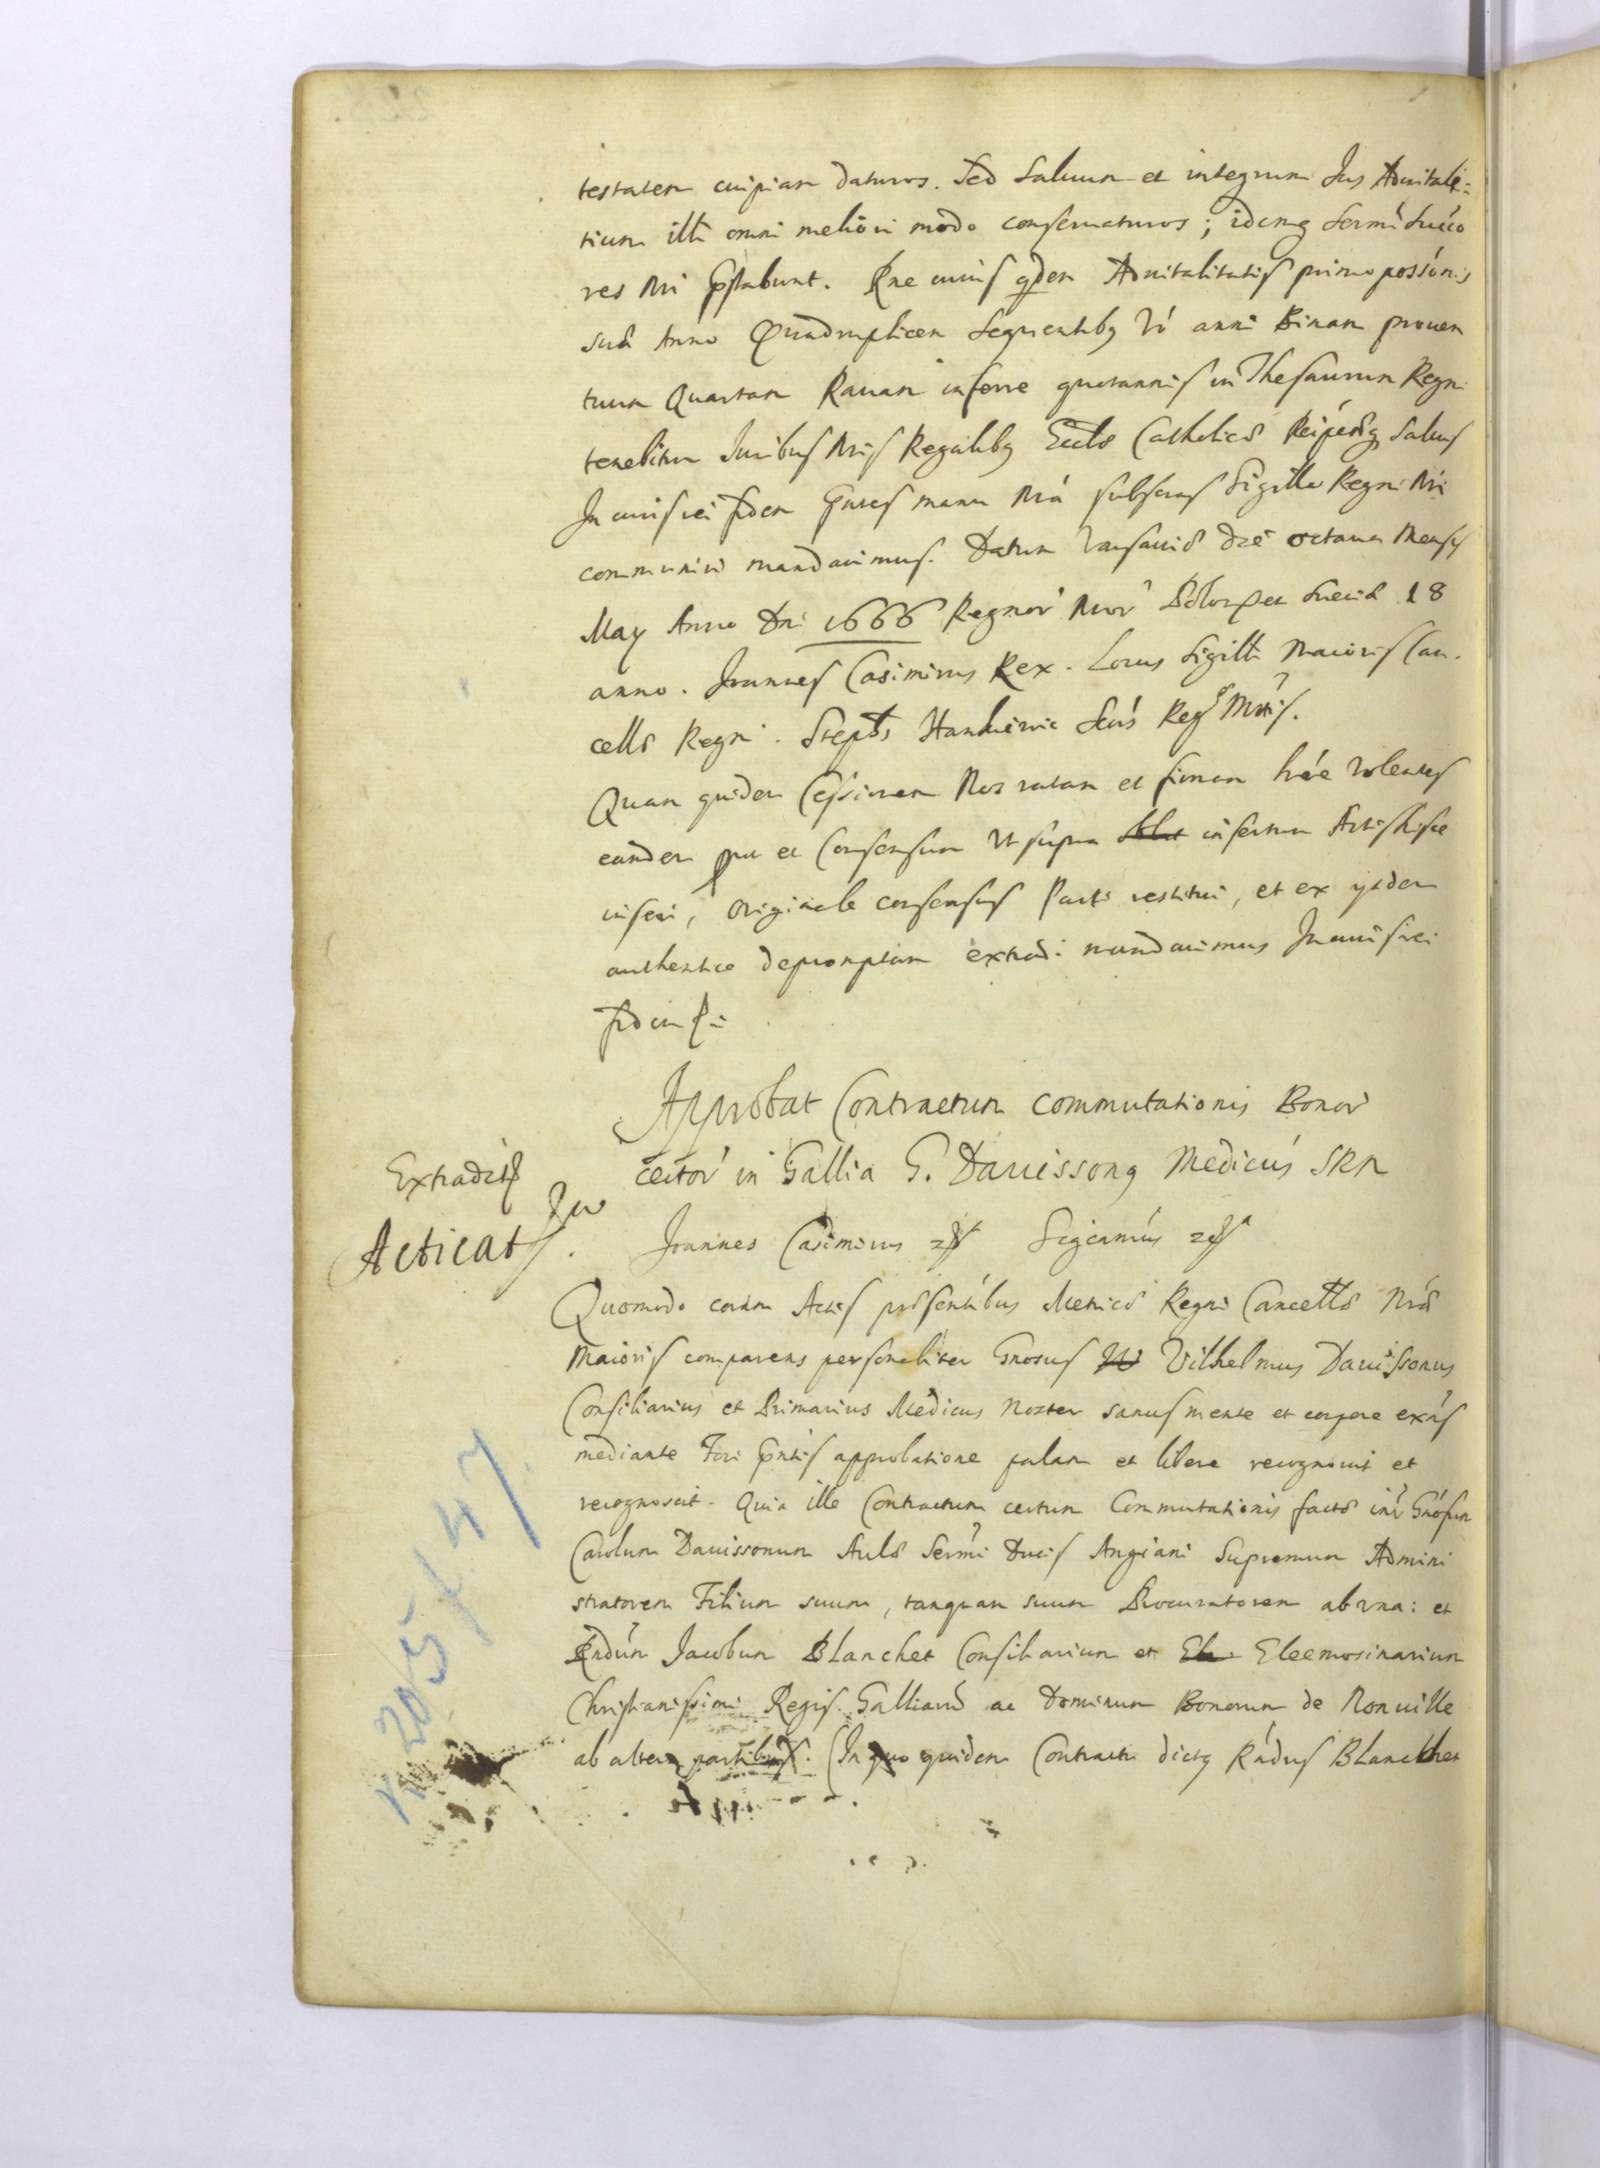 testatem cuipiam daturos. Sed salvum et integrum Jus Advitali=
tium illi omni meliori modo conservaturos; idemq Sermi Succo
res Nri pstabunt. Rne cuius qdem Advitalitatis primo possnis
suæ Anno Quadruplicem sequentibq vo anni Binam proven
tuum Quartam Ravam inferre quotannis in Thesaurum Regni
tenebitur Juribus Nris Regalibq Ecclæ Catholicæ Reipcæq salvis
In cuius rei fidem pntes manu Nra subscras Sigillo Regni Nri
communiri mandavimus. Datum Varsaviæ die octava Mensis
May Anno Dni 1666 Regnor Nror Poloæ et Sueciæ 18
anno. Joannes Casimirus Rex. Locus Sigilli Maioris Can
cellæ Regni. Stephs Hankiewic Secrs Rgæ Mttis.
Quam quidem Cessionem Nos ratam et firmam hre volentes
eandem prt et Consensum ut supra insertum Actis hisce
inseri, originale consensus Parti restitui, et ex ysdem
authentice depromptam extradi mandavimus In cuius rei
fidem
Approbat Contractum commutationis Bonor
certor in Gallia G. Davissonq Medicus SRM
Extradit
Acticat
Joannes Casimirus Significamus
Quomodo coram Actis præsentibus Metrices Regni Cancellæ Nræ
Maioris comparens personaliter Gnosus Vilhelmus Davissonus
Consiliarius et Primarius Medicus Noster sanus mente et corpore exns
mediante Fori pntis approbatione palam et libere recognovit et
recognoscit. Quia ille Contractum certum Commutationis factæ intr Gnosum
Carolum Davissonum Aulæ Sermi Ducis Angiani Supremum Admini
stratorem Filium suum, tanquam suum Procuratorem ab una: et
Rndum Jacobum Blanchet Consiliarium et Eleemosinarium
Christianissimi Regis Galliarū ac Dominum Bonorum de Nonville
ab altera partibus. In quo quidem Contractu dictq Rndus Blanchet
N 205 f 47